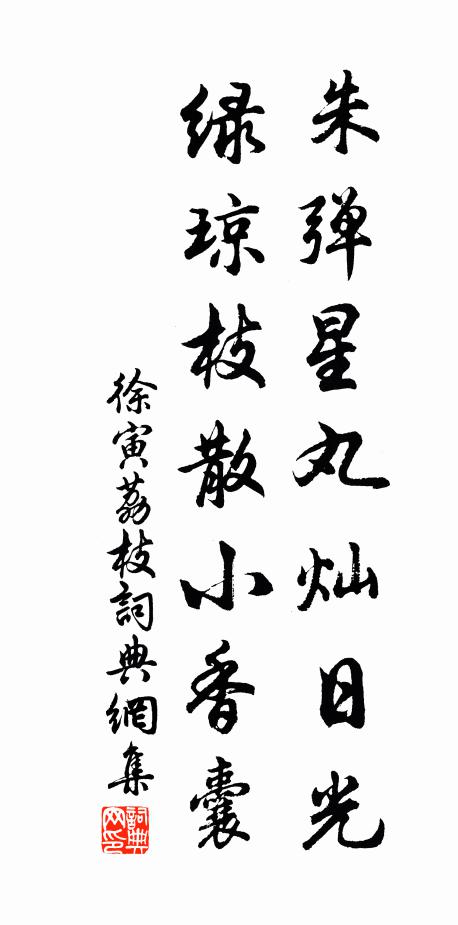 朱弹星丸灿日光
绿琼枝散小香囊
徐寅荔枝詞典網集
詞典网印